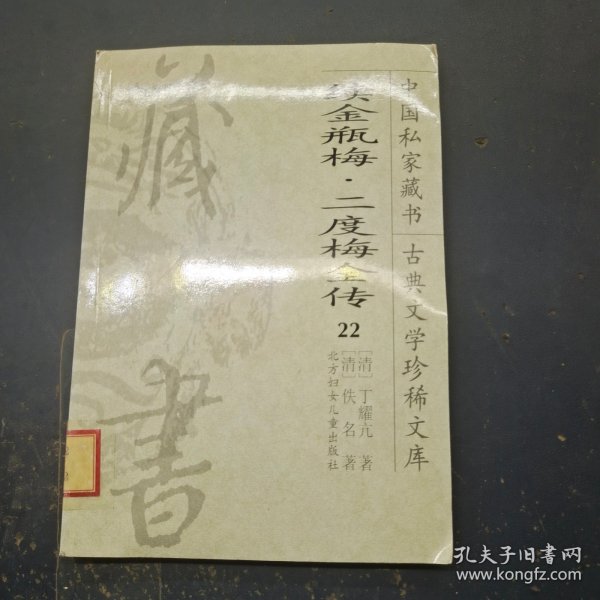 中国私家藏书
古典文学珍稀文库
续金瓶梅·二度梅全传
22
［清］丁耀亢 著
［清］佚名 著
北方妇女儿童出版社
藏書
孔夫子旧书网
www.kongfz.com